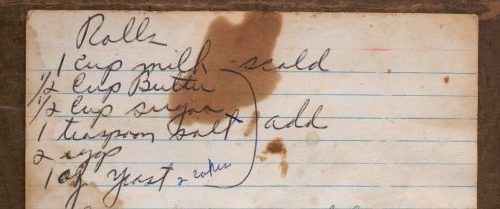 Rolls
1 Cup milk - scald
1/2 Cup Butter
1/2 Cup sugar
1 teaspoon salt add
2 eggs
1 oz yeast 2 cakes